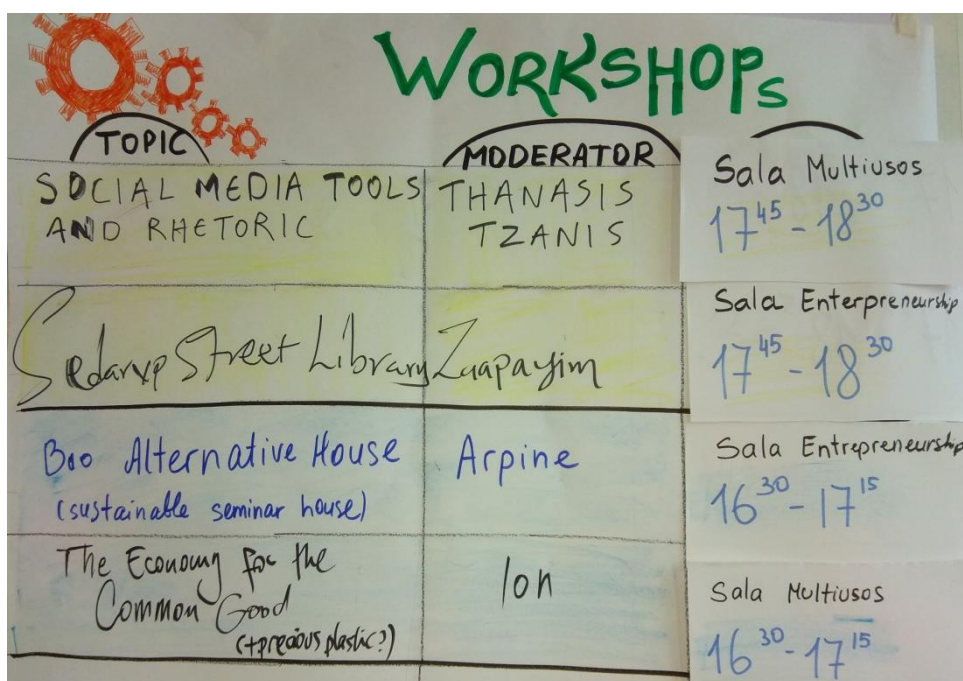 WORKSHOPs
TOPIC
MODERATOR
SOCIAL MEDIA TOOLS
AND RHETORIC
THANASIS
TZANIS
Sala Multiusos
17 45 - 18 30
Street Library
Sala Enterpreneurship
17 45 - 18 30
Boo Alternative House
(sustainable seminar house)
Arpine
Sala Entrepreneurship
16 30 - 17 15
The Economy for the
Common Good
(+precious plastic?)
Ion
Sala Multiusos
16 30 - 17 15